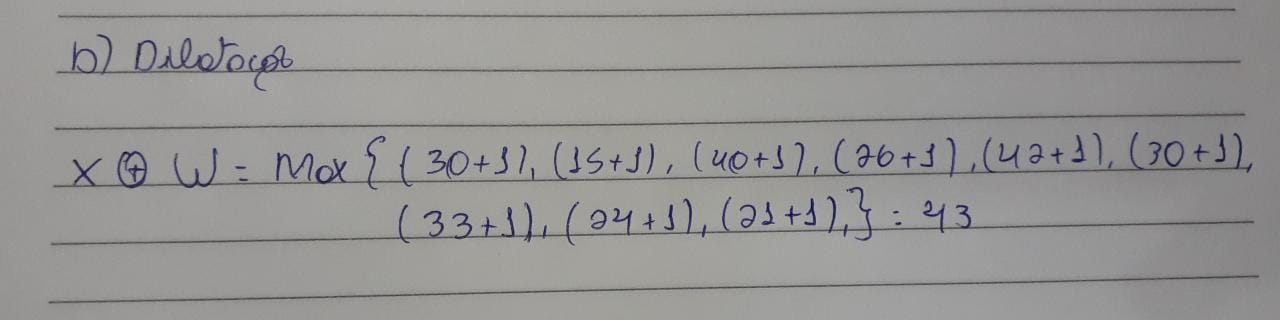 b) Dilatação
X ⊕ W = Max { (30+1), (15+1), (40+1), (26+1), (42+1), (30+1),
(33+1), (24+1), (21+1), } = 43